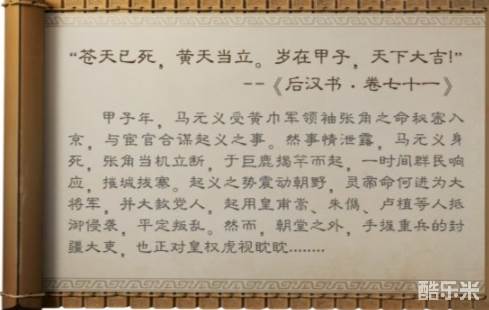 “苍天已死，黄天当立。岁在甲子，天下大吉!”
--《后汉书·卷七十一》
甲子年，马元义受黄巾军领袖张角之命秘密入
京，与宦官合谋起义之事。然事情泄露，马元义身
死，张角当机立断，于巨鹿揭竿而起，一时间群民响
应，摧城拔寨。起义之势震动朝野，灵帝命何进为大
将军，并大赦党人，起用皇甫嵩、朱儁、卢植等人抵
御侵袭，平定叛乱。然而，朝堂之外，手握重兵的封
疆大吏，也正对皇权虎视眈眈........
酷乐米